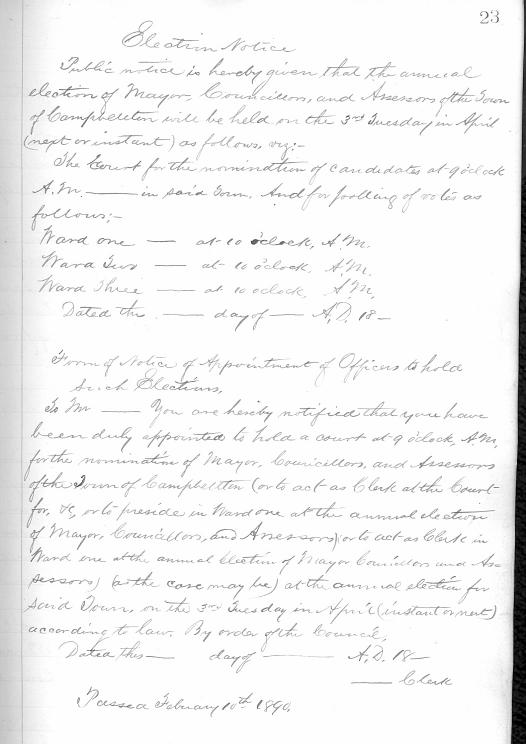 23
Election Notice
Public notice is hereby given that the annual
election of Mayor, Councillors, and Assessors of the Town
of Campbellton will be held on the 3rd Tuesday in April
(next or instant) as follows, viz:-
The Court for the nomination of candidates at 9 o'clock
A.M. —— in said Town. And for polling of votes as
follows:-
Ward one — at 10 o'clock, A.M.
Ward Two — at 10 o'clock, A.M.
Ward Three — at 10 o'clock, A.M.
Dated this — day of — A.D. 18—
Form of Notice of Appointment of Officers to hold
such Elections,
To Mr —— You are hereby notified that you have
been duly appointed to hold a court at 9 o'clock, A.M,
for the nomination of Mayor, Councillors, and Assessors
of the Town of Campbellton (or to act as Clerk at the Court
for, &c, or to preside in Ward one at the annual election
of Mayor, Councillors, and Assessors) (or to act as Clerk in
Ward one at the annual Election of Mayor Councillors and As-
sessors) (as the case may be) at the annual election for
said Town, on the 3rd Tuesday in April (instant or next)
according to law. By order of the Council,
Dated this — day of —— A.D. 18—
—— Clerk
Passed February 10th 1890.